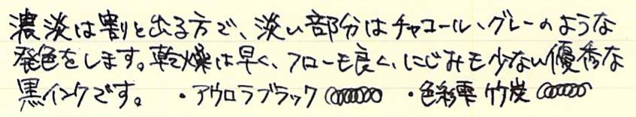 濃淡は割と出る方で、淡い部分はチャコール・グレーのような
発色をします。乾燥は早く、フローも良く、にじみも少ない優秀な
黒インクです。 ・アウロラブラック ・色彩雫 竹炭